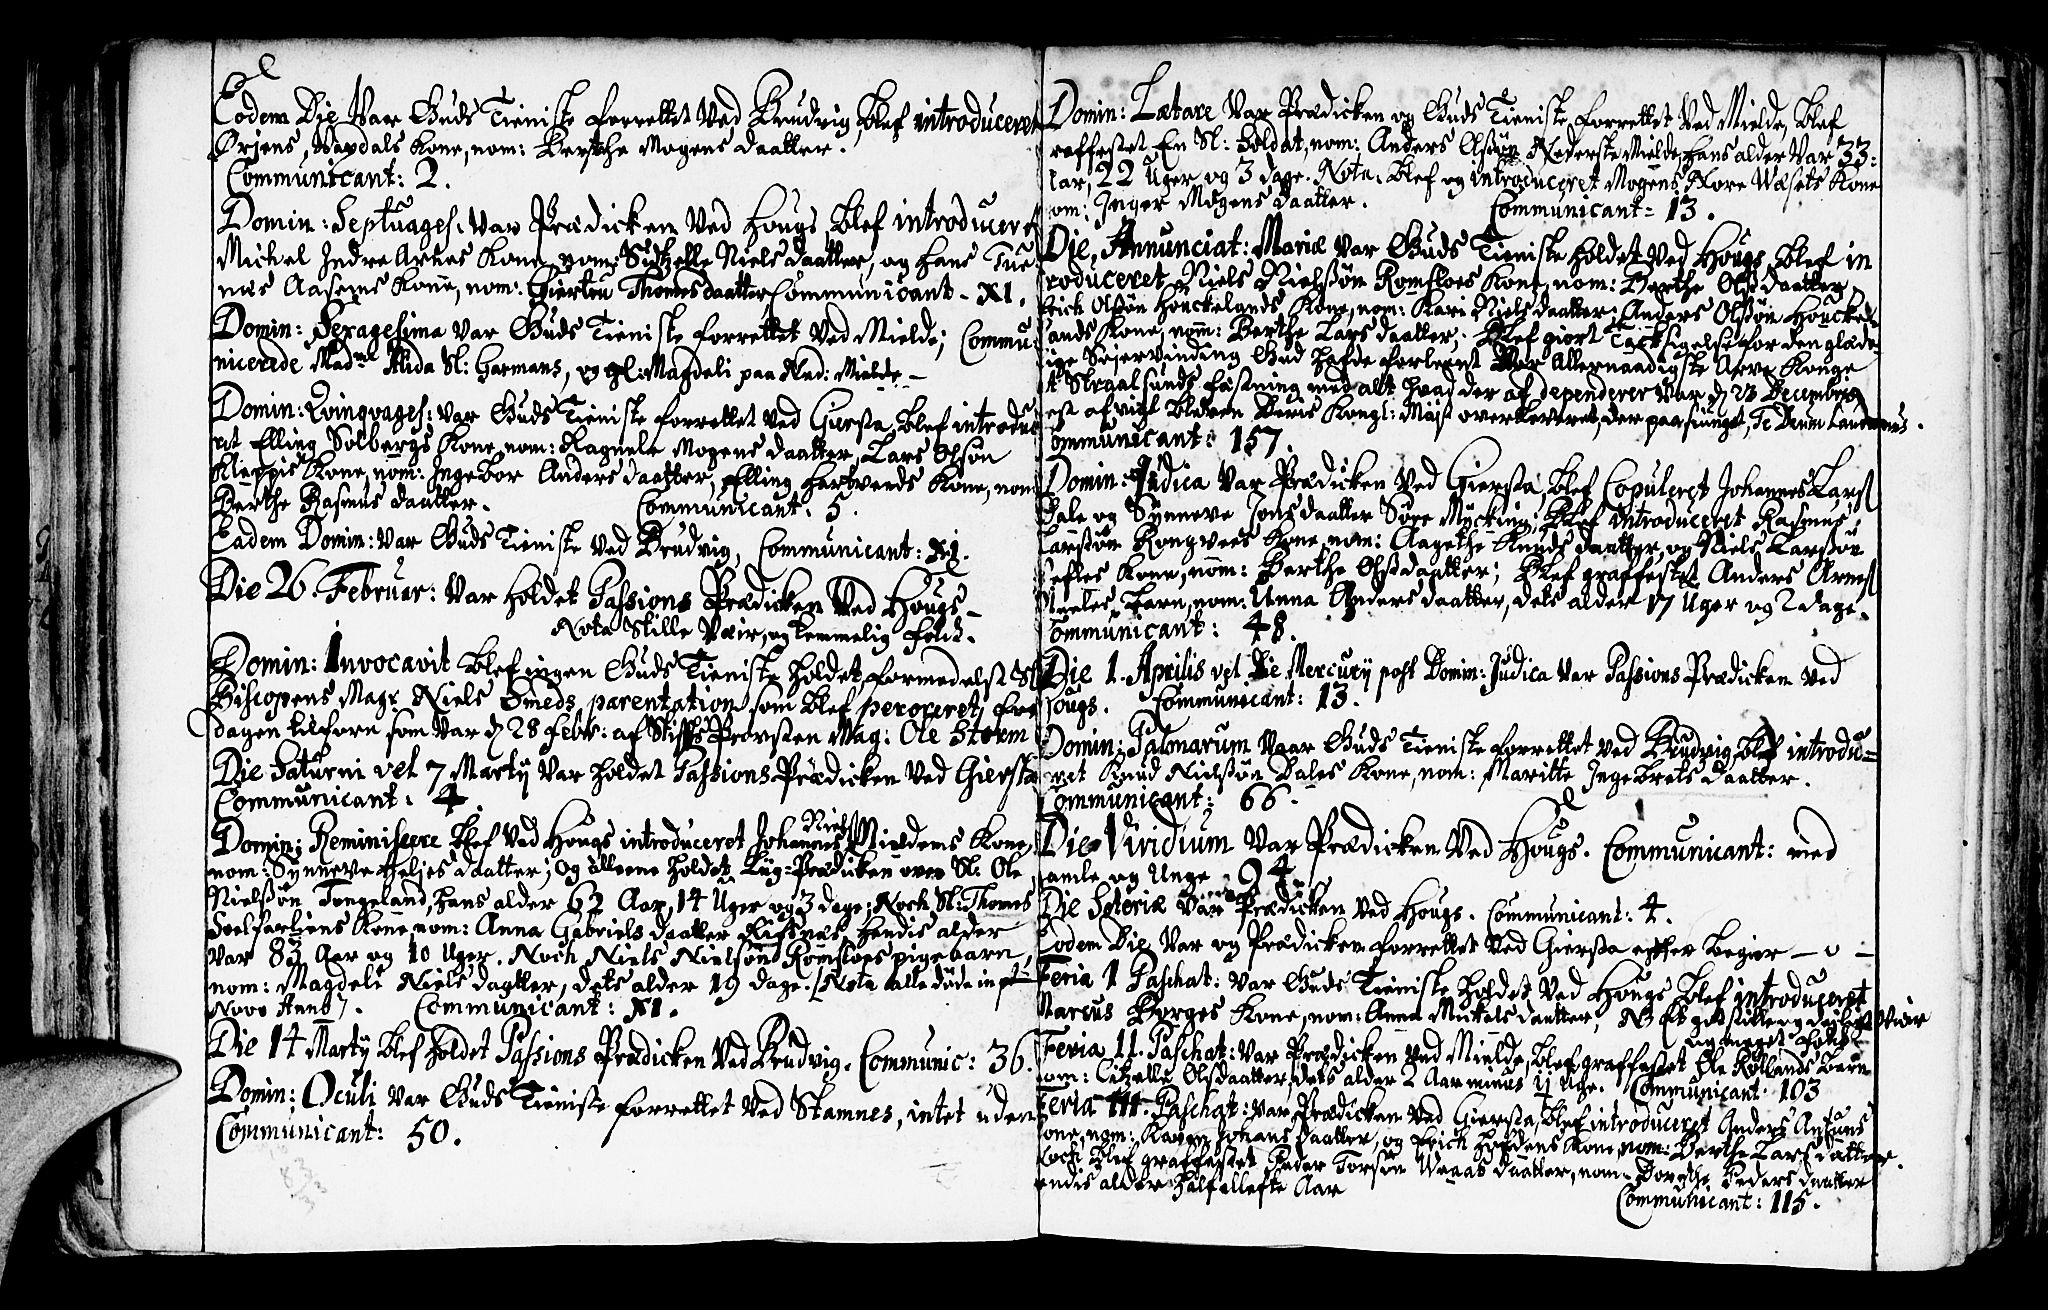 Eodem Die Var Guds Tieniste forrettet Ved Brudvig, blef introduceret
Ørjens Vaxdals Kone, nom: Berthe Mogens daatter.
Communicant: 2.
Domin: Septuages: Var Prædicken Ved Hougs, blef introduceret
Michel Indre Arnes Kone, nom: Sidzelle Niels daatter, og Hans Tue
næs Aasems Kone, nom: Giertru Thomes daatter Communicant - XI.
Domin: Sexagesima Var Guds Tieniste forrettet Ved Mielde; Commu
nicerede Mad.me Alida Sl: Garmans, og gl: Magdeli paa Ned: Mielde -
Domin: Qvinqvages: Var Guds Tieniste forrettet Ved Giersta, blef introdu
ret Elling Solbergs Kone, nom: Ragnele Mogens daatter, Lars Olsøn
Kleppis Kone, nom: Ingebor Anders daatter, Elling Hartveds Kone, nom
Berthe Rasmus daatter. Communicant: 5.
Eadem Domin: Var Guds Tieniste Ved Brudvig, Communicant: XI.
Die 26. Februar: Var holdet Passions Prædicken Ved Hougs -
Nota Stille Væir, og temmelig folck.
Domin: Invocavit blef ingen Guds Tieniste holdet, formedelst Sl
Biscopens Mag: Niels Smeds parentation som blef peroreret
dagen tilforn som Var d 28 Febr: af Stifts Provsten Mag: Ole Storm
Die Saturni vel 7 Martij Var holdet Passions Prædicken Ved Giersta
Communicant: 4
Domin: Reminiscere blef Ved Hougs introduceret Johannes Niels Mieldems Kone,
nom: Synneve Heljes daatter; Og alleene holdet Liig-Prædicken over Sl: Ole
Nielsøn Tongeland, hans alder 62 Aar, 14 Uger og 3 dage; Noch Sl: Thomes
Soelfarliens Kone, nom: Anna Gabriels daatter Risnæs, hendis alder
Var 83 Aar og 10 Uger. Noch Niels Nielsøn Romsloes pigebarn,
nom: Magdele Niels daatter, dets alder 19 dage. [Nota alle døde in pt:
Novo Anno]. Communicant: XI.
Die 14 Martij blef holdet Passions Prædicken Ved Brudvig. Communic: 36.
Domin: Oculi Var Guds Tieniste forrettet Ved Stamnes, intet uden
Communicant: 50.
Domin: Lætare Var Prædicken og Guds Tieniste forrettet Ved Mielde, blef
raffestet En Sl: Soldat, nom: Anders Olsøn Nederste Mielde, hans alder Var 33:
Aar, 22 Uger og 3 dage. Nota: blef og introduceret Mogens Nore Wæsets Kone
nom: Inger Mogens daatter. Communicant = 13.
Die Annunciat: Mariæ Var Guds Tieniste holdet Ved Hougs, blef in
troduceret Niels Nielsøn Romsloes Kone, nom: Berthe Ols daatter,
Erich Olsøn Houckelands Kone, nom: Kari Niels daatter; Anders Olsøn Houckel
ands Kone, nom: Berthe Lars daatter. Blef giort Tacksigelse for den glæde
lige Sejervinding Gud hafde forleent Vor Allernaadigste Arve Konge
t Straalsunds fæstning med alt hvad der af dependerer Var d 23 Decembris
Kongl: Majst overleveret, der paa siunget, Te Deum Laudamus.
Communicant: 157.
Domin: Judica Var Prædicken Ved Giersta, blef Copuleret Johannes Lars
Dale og Synneve Jons daatter Søre Mycking; blef introduceret Rasmus
Larssøn Rongveds Kone, nom: Aagethe Knuds daatter, og Niels Larssøn
Kone, nom: Berthe Ols daatter; Blef graffestet Anders Arnes
barn, nom: Anna Anders daatter, dets alder 17 Uger og 2 dage.
Communicant: 48.
Die 1. Aprilis vel Die Mercurij post Domin: Judica Var Passions Prædicken Ved
Hougs. Communicant: 13.
Domin: Palmarum Vaar Guds Tieniste forrettet Ved Brudvig, blef introdu=
ret Knud Nielsøn Dales Kone, nom: Maritte Ingebrets daatter.
Communicant: 66.
Die Viridium Var Prædicken Ved Hougs. Communicant: med
Gamle og Unge 94.
Die Soteriæ Var Prædicken Ved Hougs. Communicant: 4.
Eodem Die Var og Prædicken forrettet Ved Giersta efter begier - 0 -
Feria 1 Paschat: Var Guds Tieniste holdet Ved Hougs, blef introduceret
Marcus Borges Kone, nom: Anna Mickels daatter, NB Et god stille og dejligt Veir
og meget folck
Feria 11. Paschat: Var Prædicken Ved Mielde, blef graffestet Ole Rollands barn
nom: Citzelle Olsdaatter, dets alder 2 Aar minus 1 Uge. Communicant 103
Feria 111. Paschat: Var Prædicken Ved Giersta, blef introduceret Anders Antuns
Kone, nom: Karen Johans daatter, og Erich Kone, nom: Berthe Lars datter.
Noch blef graffestet Peder Torsøn daatter, nom: Dorethe Peders daatter
hendis alder halfellefte Aar
Communicant: 115.